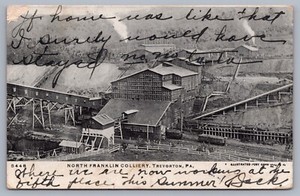 If home was like that
I surely would have
stayed
6446 NORTH FRANKLIN COLLIERY, TREVORTON, PA.
Where we are now working at the
fifth place this summer Back